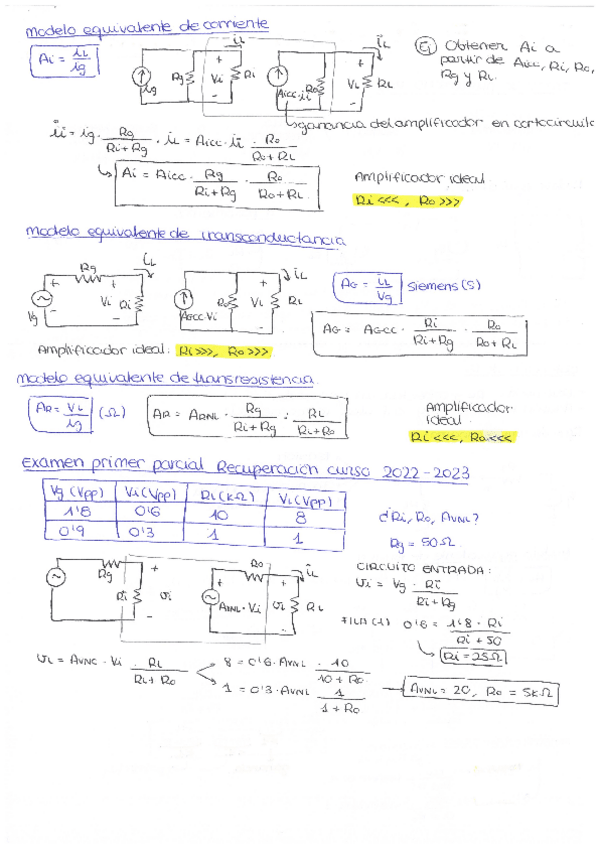 modelo equivalente de corriente
Ai = iL/ig
iL
iL
ig
Rg
+
Vi
-
Ri
Aicc·ii
Ro
+
VL
-
RL
Ej Obtener Ai a
partir de Aicc, Ri, Ro,
Rg y RL.
ganancia del amplificador en cortocircuito
ii = ig · Rg/(Ri+Rg) · iL = Aicc·ii · Ro/(Ro+RL)
Ai = Aicc · Rg/(Ri+Rg) · Ro/(Ro+RL)
Amplificador ideal
Ri<<<, Ro>>>
modelo equivalente de transconductancia
Rg
iL
iL
Vg
+
Vi
-
Ri
AGCC·Vi
Ro
+
VL
-
RL
AG = iL/Vg Siemens (S)
AG = AGCC · Ri/(Ri+Rg) · Ro/(Ro+RL)
Amplificador ideal: Ri>>>, Ro>>>
modelo equivalente de transresistencia
AR = VL/ig (Ω)
AR = ARNL · Rg/(Ri+Rg) · RL/(RL+Ro)
Amplificador
ideal
Ri<<<, Ro<<<
Examen primer parcial Recuperación curso 2022-2023
Vg (Vpp) Vi (Vpp) RL (KΩ) VL (Vpp)
1'8 0'6 10 8
0'9 0'3 1 1
¿Ri, Ro, AVNL?
Rg = 50Ω
Rg
Ri
+
Vi
-
Ro
+
-
AVNL·Vi
+
VL
-
iL
RL
CIRCUITO ENTRADA:
Vi = Vg · Ri/(Ri+Rg)
FILA (1) 0'6 = 1'8 · Ri/(Ri+50)
Ri = 25Ω
VL = AVNC · Vi · RL/(RL+Ro)
8 = 0'6 · AVNL · 10/(10+Ro)
1 = 0'3 · AVNL · 1/(1+Ro)
AVNL = 20, Ro = 5KΩ